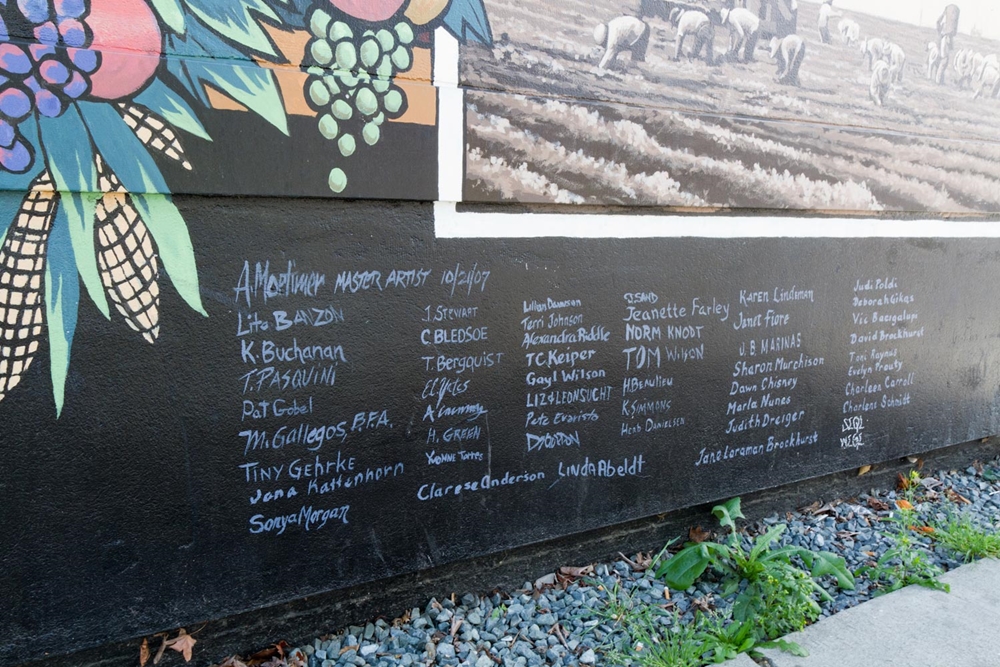 A. Mortimer MASTER ARTIST 10/21/07
Lito BANZON
K. Buchanan
T. PASQUINI
Pat Gobel
M. Gallegos, B.F.A.
TINY GEHRKE
Jana Kattenhorn
Sonya Morgan
J. STEWART
C. BLEDSOE
T. Bergquist
H. GREEN
YVONNE TORRES
Clarese Anderson
Lillian Davidson
Terri Johnson
Alexandra Riddle
TC Keiper
Gayl Wilson
LIZ & LEON SUCHT
Pete Evaristo
Linda Abeldt
S. SAND
Jeanette Farley
NORM KNODT
TOM WILSON
H. BEAULIEU
K. SIMMONS
HERB DANIELSEN
KAREN Lindeman
Janet Fiore
J. B. MARINAS
Sharon Murchison
Dawn Chisney
Marla Nunes
Judith Dreiger
Jane Laraman Brockhurst
Judi Poldi
Deborah Gikas
Vic Baergalupi
David Brockhurst
Toni Raynal
Evelyn Prouty
Charleen Carroll
Charlene Schmidt